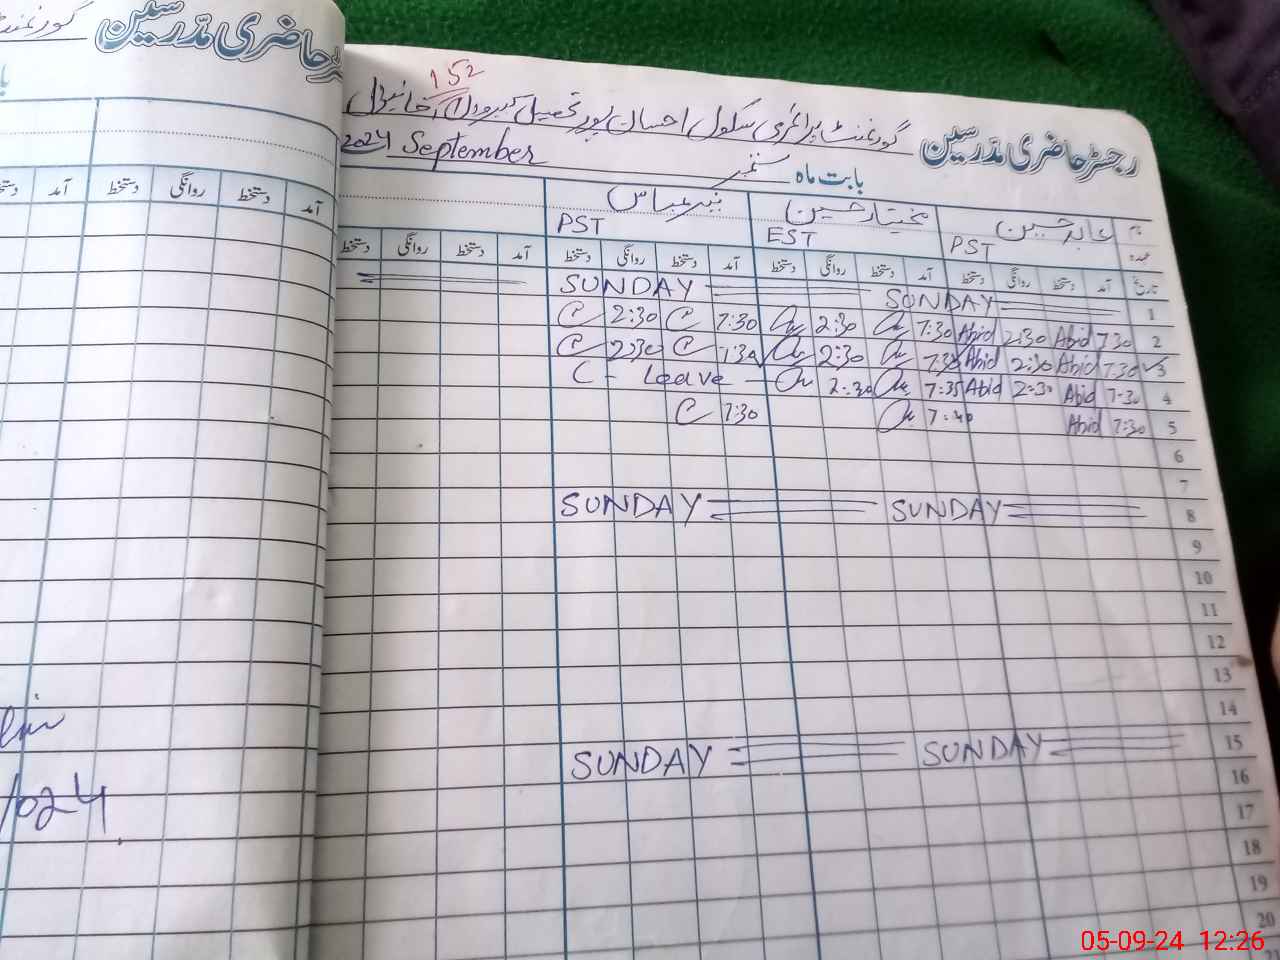 رجسٹر حاضری مدرسین
گورنمنٹ پرائمری سکول احسان پور تحصیل کبیروالا خانیوال
152
بابت ماہ ستمبر September 2024
نام عابد حسین مختیار حسین
عہدہ PST EST PST
تاریخ آمد دستخط روانگی دستخط آمد دستخط روانگی دستخط آمد دستخط روانگی دستخط آمد دستخط روانگی دستخط
1 SUNDAY SUNDAY
2 7:30 Abid 2:30 Abid 7:30 2:30 7:30 2:30
3 7:30 Abid 2:30 Abid 7:35 2:30 7:30 2:30
4 7:30 Abid 2:30 Abid 7:35 2:30 C - Leave -
5 7:30 Abid 7:40 7:30
6
7
8 SUNDAY SUNDAY
9
10
11
12
13
14
15 SUNDAY SUNDAY
16
17
18
19
20
21
رجسٹر حاضری مدرسین
گورنمنٹ
آمد دستخط روانگی دستخط آمد دستخط
05-09-24 12:26